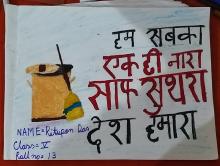 हम सबका
एक ही नारा
साफ सुथरा
देश हमारा
NAME=Ritupon Das
Class=V
Roll no=13